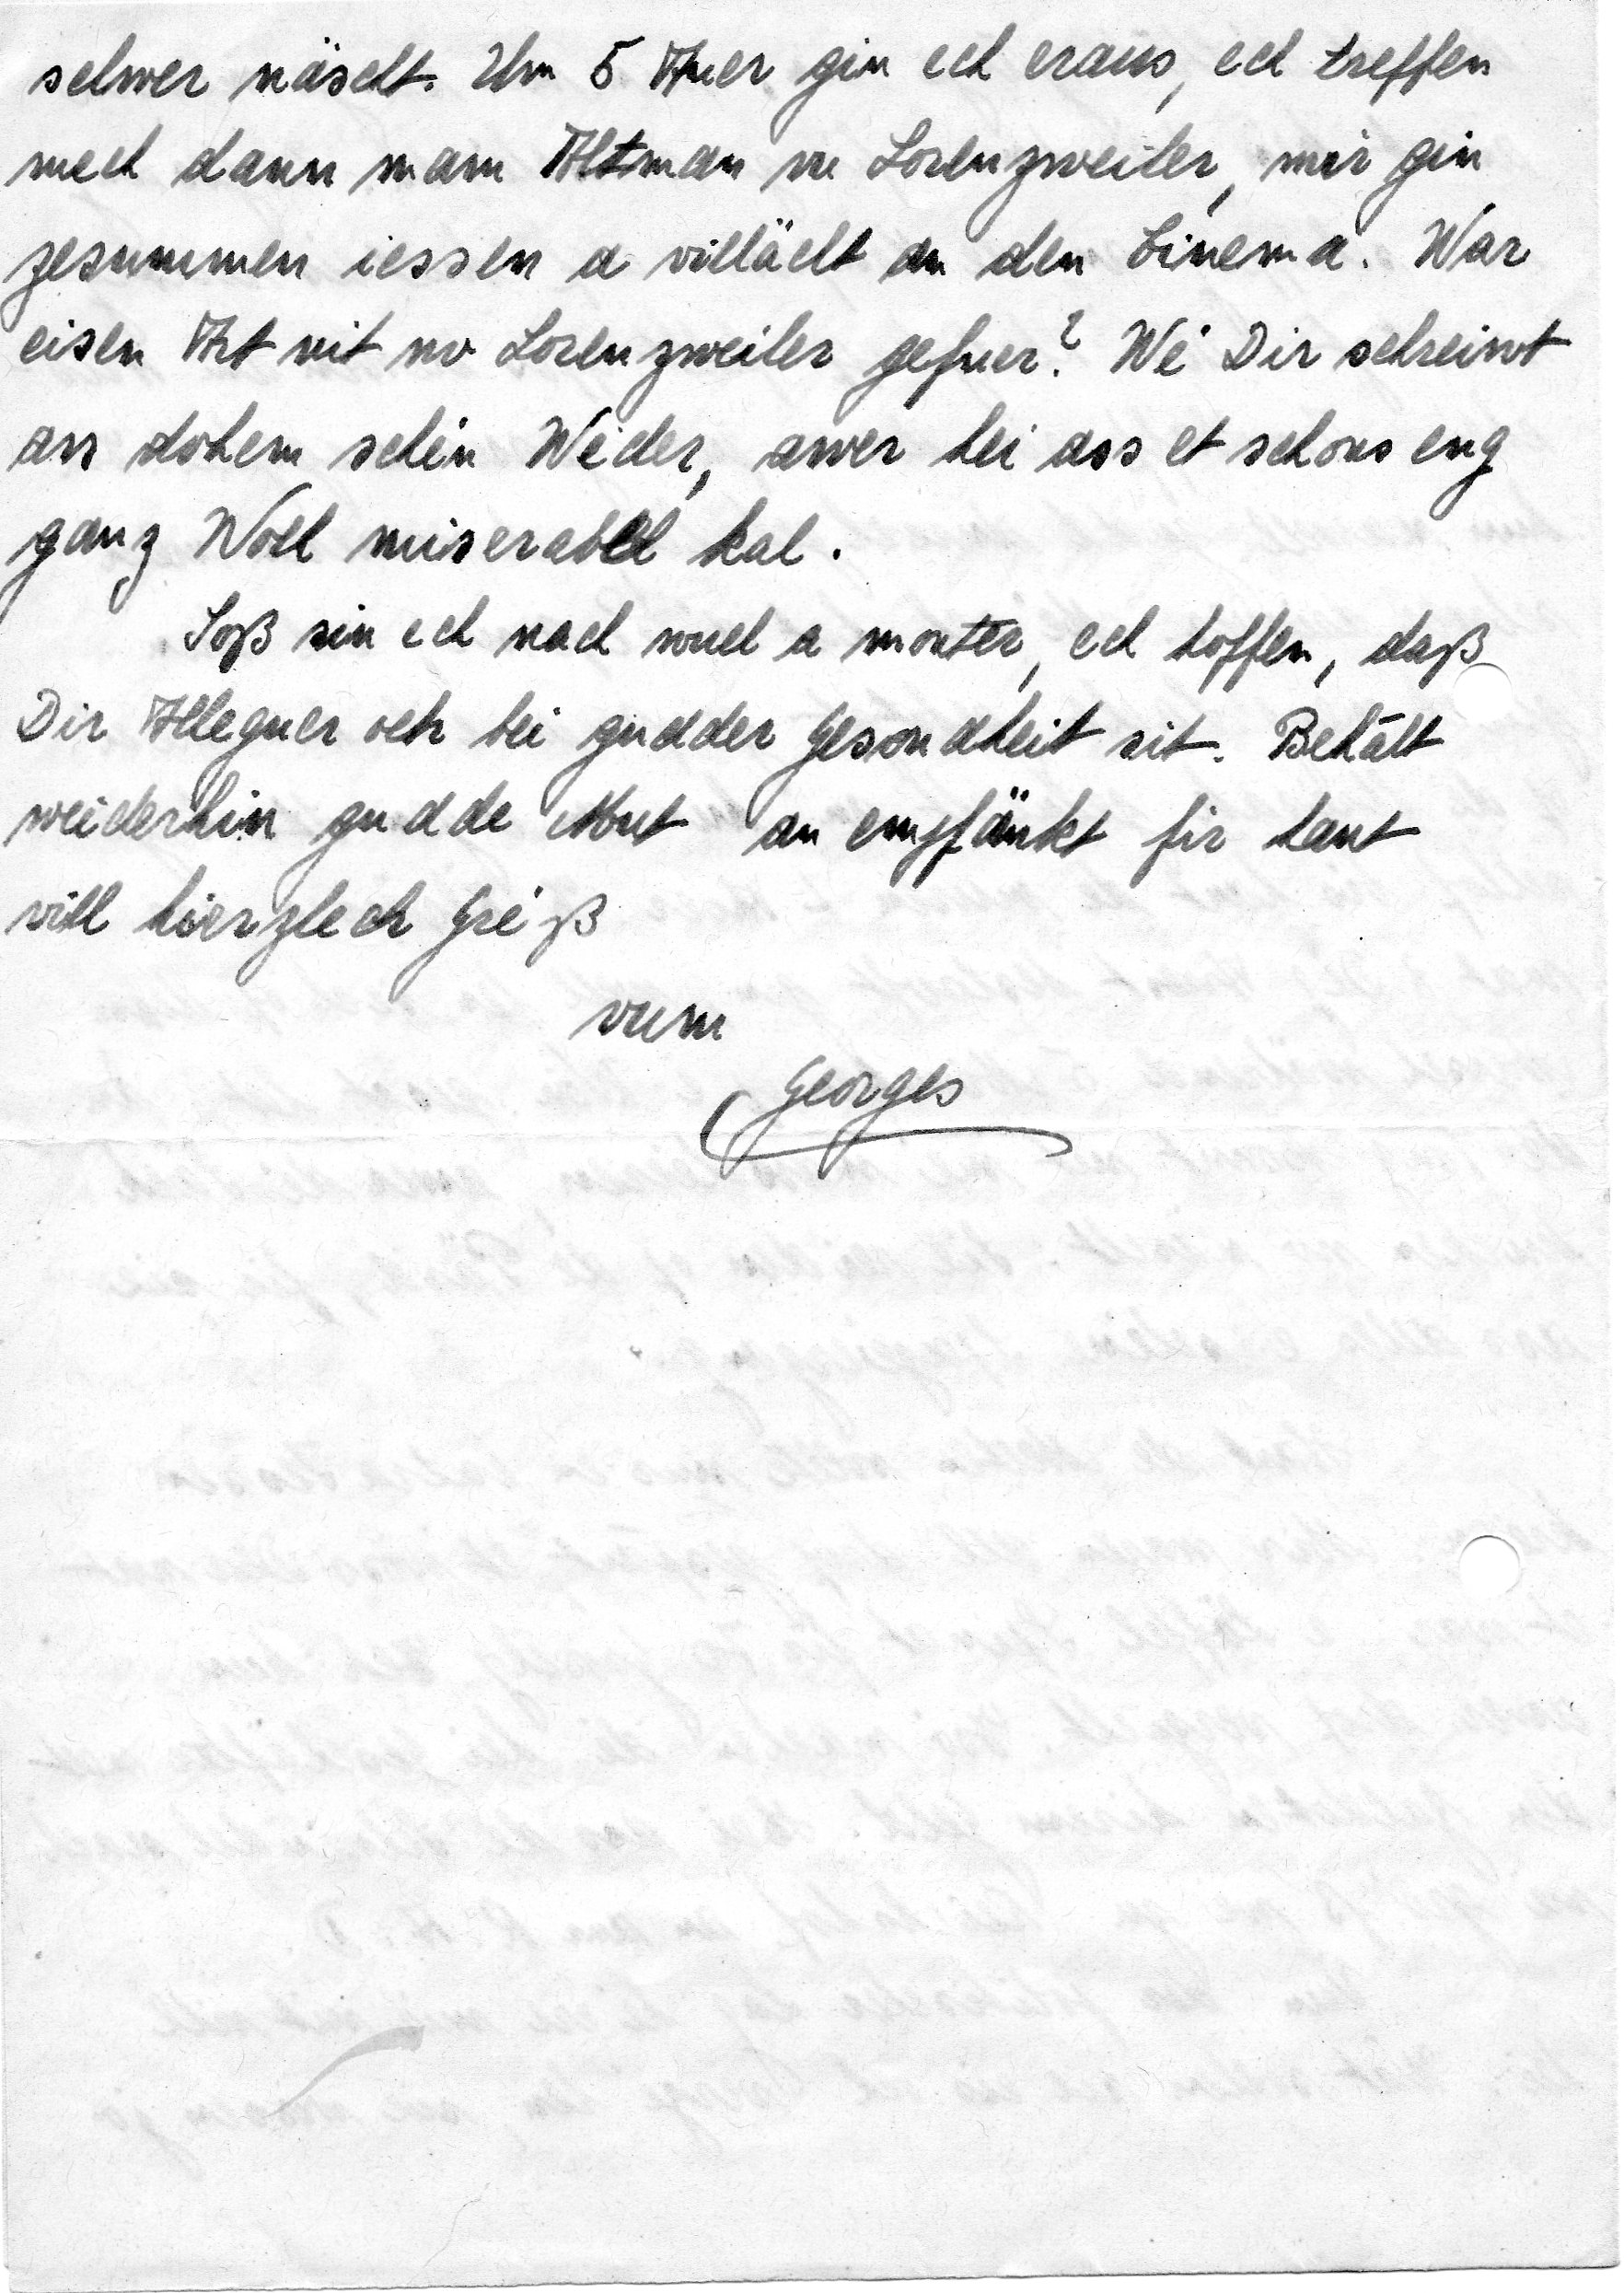 selwer näscht. Um 5 Auer gin ech eraus, ech treffen
mech dann mam Altman vu Lorenzweiler, mir gin
zesummen iessen a villächt an den Cinema. War
eisen Art nit no Lorenzweiler gefuer? Wé Dir schreiwt
ass dohem schéin Wéder, awer hei ass et schons eng
ganz Woch miserabel kal.
Soß sin ech nach wuel a monter, ech hoffen, daß
Dir Alleguer och bei gudder Gesondheit sit. Behält
weiderhin gudde Mut an empfänkt fir haut
vill hierzlech Gréiß
vum
Georges